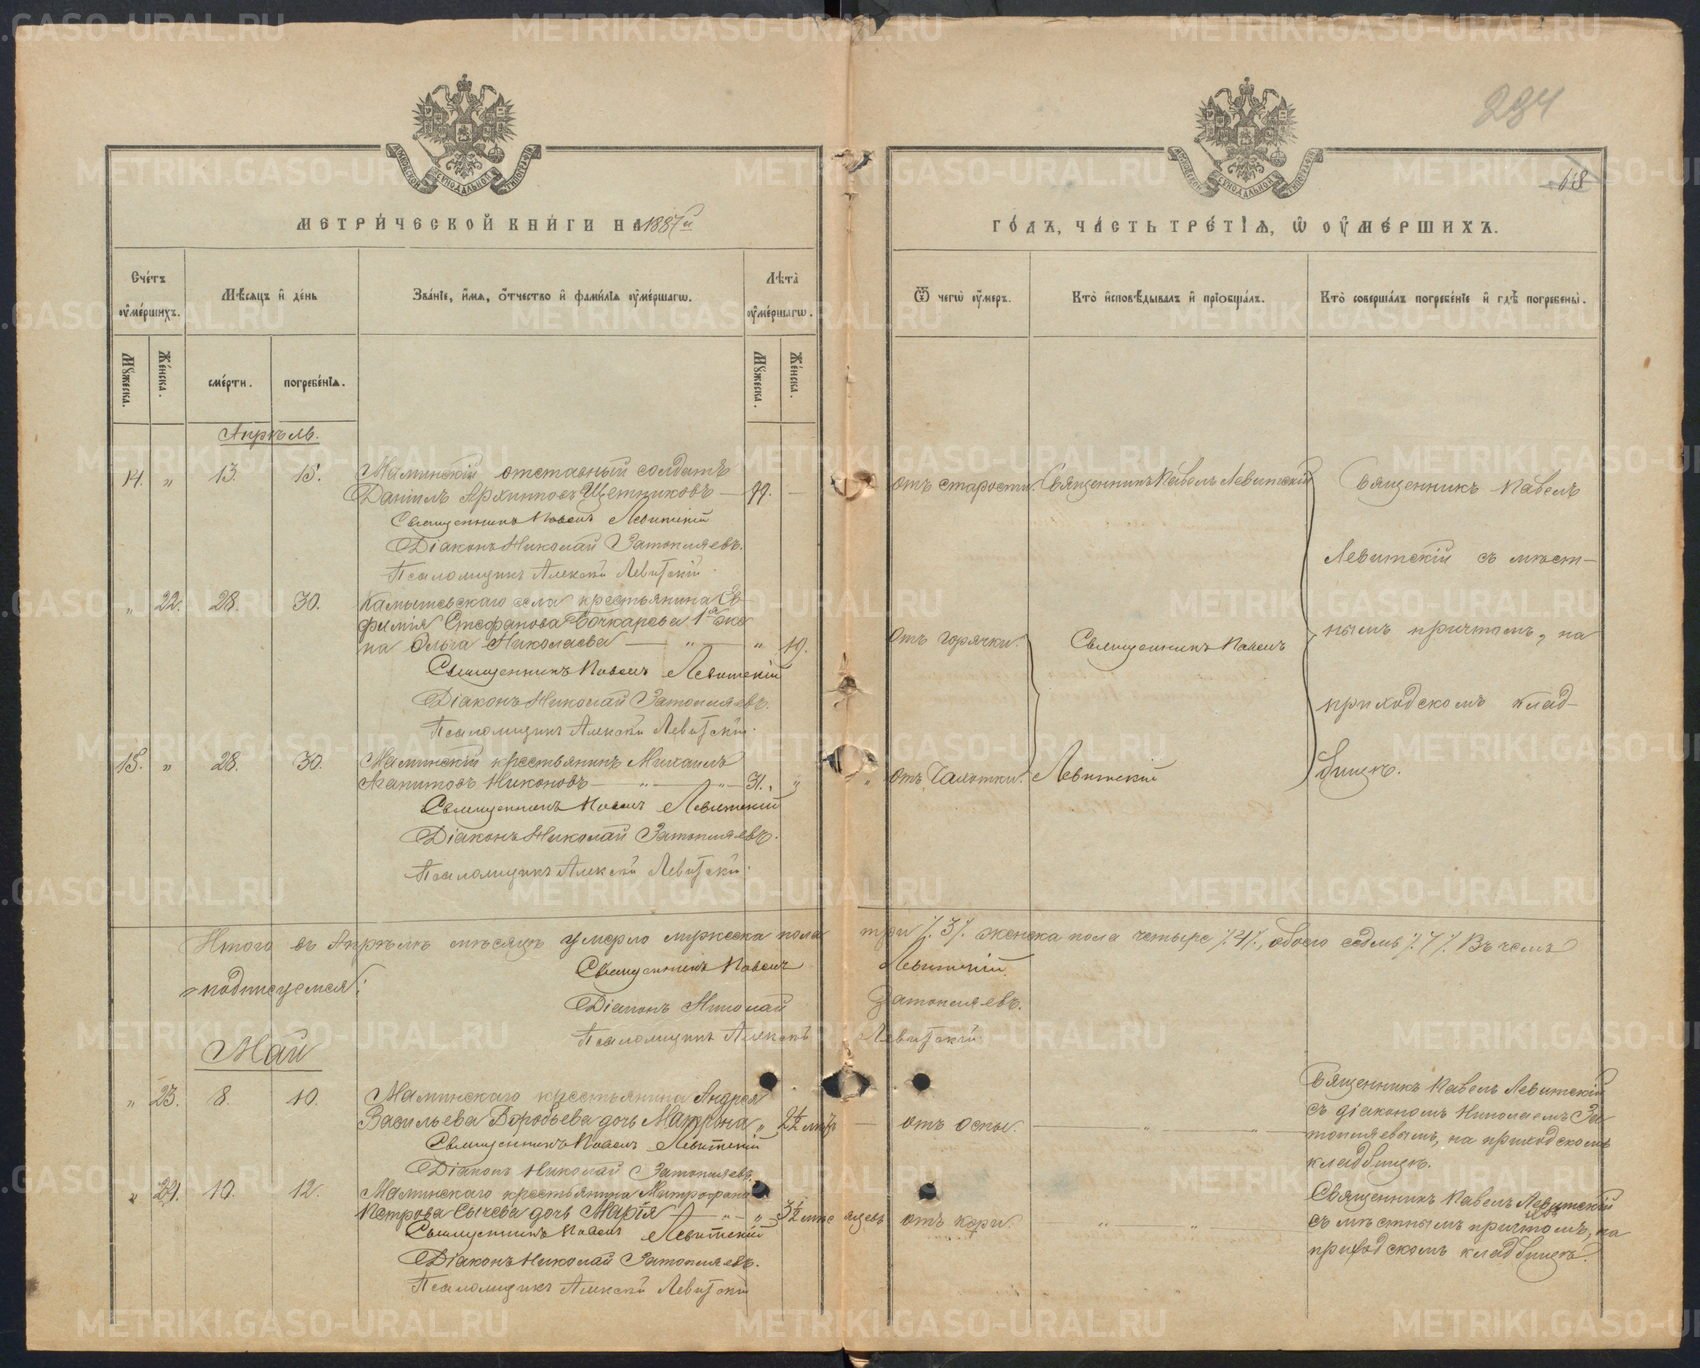 284
18
МЕТРИЧЕСКОЙ КНИГИ НА 1887й
ГОДЪ, ЧАСТЬ ТРЕТІЯ, Ѿ ОУМЕРШИХЪ.
Счетъ оумершихъ.
Мѣсяцъ и день
Званіе, имя, отчество и фамилія оумершагѡ.
Лѣта оумершагѡ.
Ѿ чегѡ оумеръ.
Кто исповѣдывалъ и пріобщалъ.
Кто совершалъ погребеніе и гдѣ погребены.
Мужеска.
Женска.
смерти.
погребенія.
Мужеска.
Женска.
Апрѣль.
14. " 13. 15. Маминскій отставный солдатъ
Даніилъ Архиповъ Щетниковъ — 77. — отъ старости. Священникъ Павелъ Левитскій
Священникъ Павелъ Левитскій
Діаконъ Николай Затопляевъ.
Псаломщикъ Алексій Левитскій.
Священникъ Павелъ
Левитскій съ мѣст-
нымъ причтомъ, на
приходскомъ клад-
бищѣ.
" 22. 28. 30. Камышевскаго села крестьянина Ев-
фимія Стефанова Бочкарева 1я же-
на Ольга Николаева — " — " 19. Отъ горячки. Священникъ Павелъ
Священникъ Павелъ Левитскій
Діаконъ Николай Затопляевъ.
Псаломщикъ Алексій Левитскій.
15. " 28. 30. Маминскій крестьянинъ Михаилъ
Никоновъ — " — " — 31. " " отъ Чахотки. Левитскій
Священникъ Павелъ Левитскій
Діаконъ Николай Затопляевъ.
Псаломщикъ Алексій Левитскій.
Итого въ Апрѣлѣ мѣсяцѣ умерло мужеска пола три /. 3 /. женска пола четыре /. 4 /., обоего седмь /. 7 /. Въ чемъ
подписуемся:
Священникъ Павелъ Левитскій.
Діаконъ Николай Затопляевъ.
Псаломщикъ Алексій Левитскій.
Май
" 23. 8. 10. Маминскаго крестьянина Андрея
Васильева Воробьева дочь Матрона " 2½ — отъ оспы. — " — " —
Священникъ Павелъ Левитскій
Діаконъ Николай Затопляевъ.
Священникъ Павелъ Левитскій
съ діакономъ Николаемъ За-
топляевымъ, на приходскомъ
кладбищѣ.
" 24. 10. 12. Маминскаго крестьянина Митрофана
Петрова Сычева дочь Марія — " — " 3½ мѣсяцевъ отъ кори. " "
Священникъ Павелъ Левитскій
Діаконъ Николай Затопляевъ.
Псаломщикъ Алексій Левитскій
Священникъ Павелъ Левитскій
съ мѣстнымъ причтомъ, на
приходскомъ кладбищѣ.
METRIKI.GASO-URAL.RU